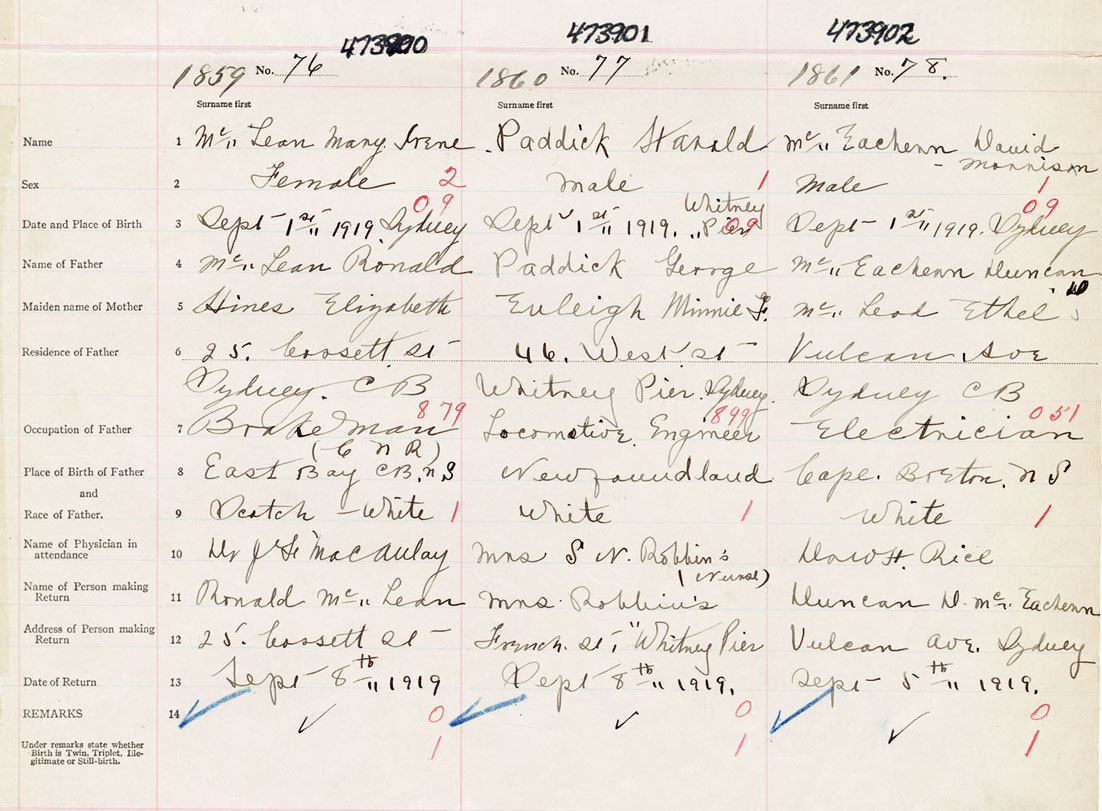 473900 473901 473902
1859 No. 76 1860 No. 77 1861 No. 78.
Surname first Surname first Surname first
Name 1 Mc Lean Mary Irene Paddick Harold Mc Eachern David
Morrison
Sex 2 Female 2 male 1 Male 1
09 Whitney 09
Date and Place of Birth 3 Sept 1st 1919 Sydney Sept 1st 1919. Pier 09 Sept 1st 1919. Sydney
Name of Father 4 Mc Lean Ronald Paddick George Mc Eachern Duncan
Maiden name of Mother 5 Hines Elizabeth Euleigh Minnie F. Mc Leod Ethel
Residence of Father 6 25. Cossett St 46. West St Vulcan Ave
Sydney. C B Whitney Pier. Sydney. Sydney C B
879 899 051
Occupation of Father 7 Brakeman Locomotive Engineer Electrician
(C N R)
Place of Birth of Father 8 East Bay CB. N S Newfoundland Cape. Breton. N S
and
Race of Father. 9 Scotch - White 1 White 1 White 1
Name of Physician in
attendance 10 Dr MacAulay Mrs S N. Robbin's Rice
(Nurse)
Name of Person making
Return 11 Ronald Mc Lean Mrs. Robbin's Duncan D. Mc Eachern
Address of Person making
Return 12 25. Cossett St French. St, Whitney Pier Vulcan Ave. Sydney
Date of Return 13 Sept 8th 1919 Sept 8th 1919. Sept 5th 1919.
REMARKS 14 ✓ 0 ✓ 0 ✓ 0
Under remarks state whether
Birth is Twin, Triplet, Ille-
gitimate or Still-birth. 1 1 1